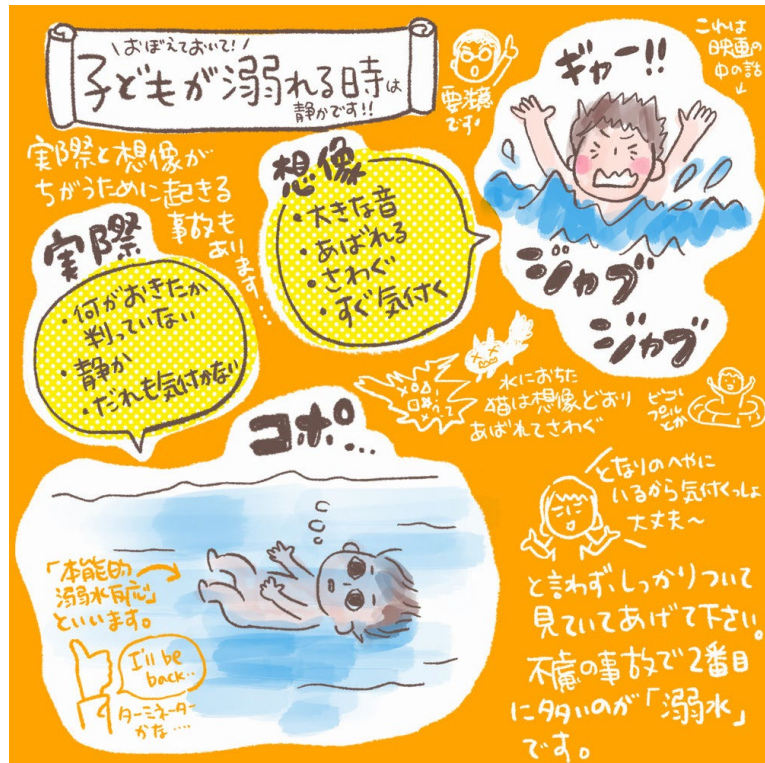 \おぼえておいて!/
子どもが溺れる時は
静かです!!
要注意
です!
これは
映画の
中の話
↓
ギャー!!
ジャブ
ジャブ
実際と想像が
ちがうために起きる
事故も
あります…
想像
・大きな音
・あばれる
・さわぐ
・すぐ気付く
実際
・何がおきたか
判っていない
・静か
・だれも気付かない
水におちた
猫は想像どおり
あばれてさわぐ
プールとか
コポ…
「本能的
溺水反応」
といいます。
I'll be
back..
ターミネーター
かな….
となりのへやに
いるから気付くっしょ
大丈夫〜
と言わず、しっかりついて
見ていてあげて下さい。
不慮の事故で2番目
に多いのが「溺水」
です。